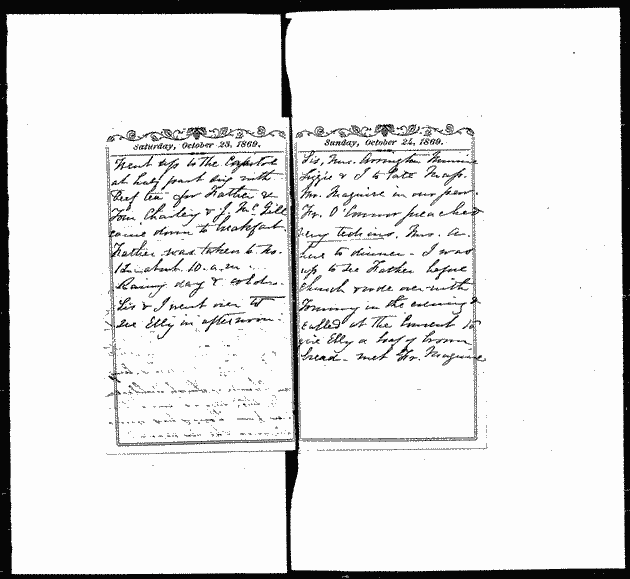 Saturday, October 23, 1869.
Went up to the Capitol
at half past six with
beef tea for Father &
Tom. Charley & J. McGill
came down to breakfast.
Father was taken to no.
12 about 10 a.m.
Rainy day & cold.
Sis & I went over to
see Elly in afternoon.
Sunday, October 24, 1869.
Sis, Mrs. Arrington Minnie
Lizzie & I to late Mass.
Mr. Maguire in our pew.
Fr. O'Connor preached
very tedious. Mrs. A.
here to dinner. I was
up to see Father before
church & rode over with
Tommy in the evening &
called at the Convent to
give Elly a loaf of brown
bread - met Fr. Maguire